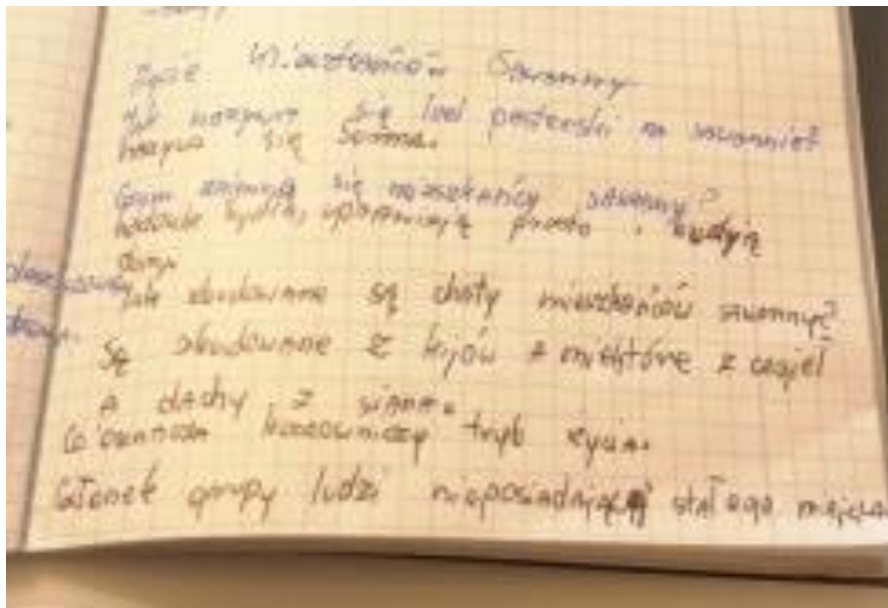 Życie Mieszkańców Sawanny
Jak nazywa się lud pasterski na sawannie?
nazywa się
Czym zajmują się mieszkańcy sawanny?
hodowle bydła, uprawiają proso i
Jak zbudowane są chaty mieszkańców sawanny?
Są zbudowane z kijów a niektóre z cegieł
A dachy z siana.
Co oznacza koczowniczy tryb życia.
Członek grupy ludzi nieposiadającej stałego miejsca